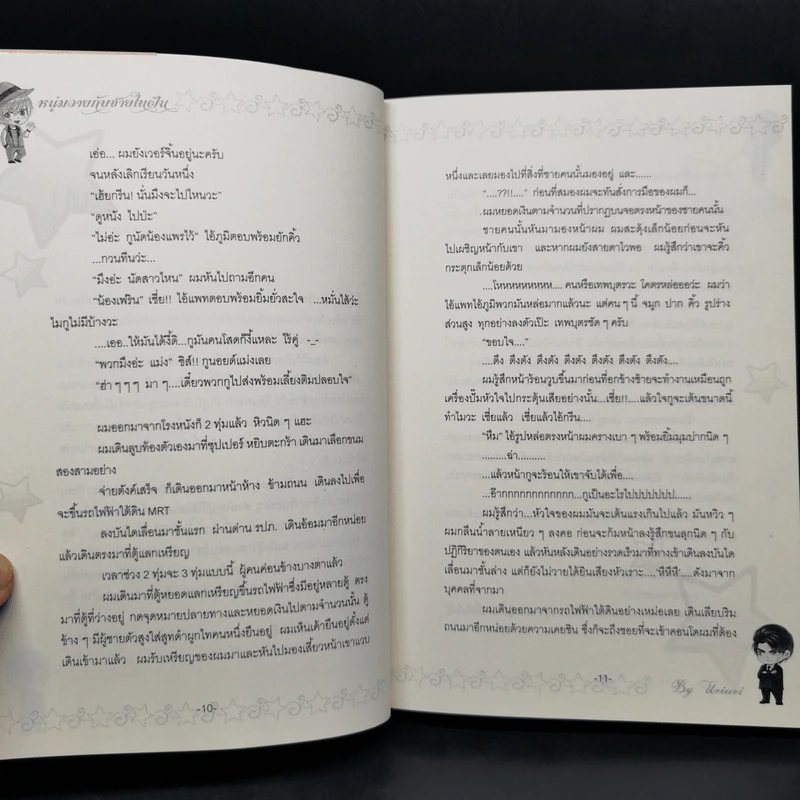 หนุ่มวายกับชายในฝัน
เอ่อ... ผมยังเวอร์จิ้นอยู่นะครับ
จนหลังเลิกเรียนวันหนึ่ง
"เฮ้ยกรีน! นั่นมึงจะไปไหนวะ"
"ดูหนัง ไปป่ะ"
"ไม่อ่ะ กูนัดน้องแพรไว้" ไอ้ภูมิตอบพร้อมยักคิ้ว
...กวนทีนว่ะ...
"มึงอ่ะ นัดสาวไหน" ผมหันไปถามอีกคน
"น้องเฟริน" เชี่ย!! ไอ้แพทตอบพร้อมยิ้มยั่วสะใจ ...หมั่นไส้ว่ะ
ไมกูไม่มีบ้างวะ
....เออ..ให้มันได้งี้ดิ...กูมันคนโสดก็งี้แหละ ไร้คู่ -_-
"พวกมึงอ่ะ แม่ง" ชิส์!! กูนอยด์แม่งเลย
"ฮ่า ๆ ๆ ๆ มา ๆ....เดี๋ยวพวกกูไปส่งพร้อมเลี้ยงติมปลอบใจ"
ผมออกมาจากโรงหนังก็ 2 ทุ่มแล้ว หิวนิด ๆ แฮะ
ผมเดินลูบท้องตัวเองมาที่ซุปเปอร์ หยิบตะกร้า เดินมาเลือกขนม
สองสามอย่าง
จ่ายตังค์เสร็จ ก็เดินออกมาหน้าห้าง ข้ามถนน เดินลงไปเพื่อ
จะขึ้นรถไฟฟ้าใต้ดิน MRT
ลงบันไดเลื่อนมาชั้นแรก ผ่านด่าน รปภ. เดินอ้อมมาอีกหน่อย
แล้วเดินตรงมาที่ตู้แลกเหรียญ
เวลาช่วง 2 ทุ่มจะ 3 ทุ่มแบบนี้ ผู้คนค่อนข้างบางตาแล้ว
ผมเดินมาที่ตู้หยอดแลกเหรียญขึ้นรถไฟฟ้าซึ่งมีอยู่หลายตู้ ตรง
มาที่ตู้ที่ว่างอยู่ กดจุดหมายปลายทางและหยอดเงินไปตามจำนวนนั้น ตู้
ข้าง ๆ มีผู้ชายตัวสูงใส่สูทดำผูกไทคนหนึ่งยืนอยู่ ผมเห็นเค้ายืนอยู่ตั้งแต่
เดินเข้ามาแล้ว ผมรับเหรียญของผมมาและหันไปมองเสี้ยวหน้าเขาแวบ
-10-
หนึ่งและเลยมองไปที่สิ่งที่ชายคนนั้นมองอยู่ และ......
"....??!!...." ก่อนที่สมองผมจะทันสั่งการมือของผมก็...
ผมหยอดเงินตามจำนวนที่ปรากฏบนจอตรงหน้าของชายคนนั้น
ชายคนนั้นหันมามองหน้าผม ผมสะดุ้งเล็กน้อยก่อนจะหัน
ไปเผชิญหน้ากับเขา และหากผมยังสายตาไวพอ ผมรู้สึกว่าเขาจะคิ้ว
กระตุกเล็กน้อยด้วย
....โหหหหหหหหห.... คนหรือเทพบุตรวะ โคตรหล่อออว่ะ ผมว่า
ไอ้แพทไอ้ภูมิพวกมันหล่อมากแล้วนะ แต่คน ๆ นี้ จมูก ปาก คิ้ว รูปร่าง
ส่วนสูง ทุกอย่างลงตัวเป๊ะ เทพบุตรชัด ๆ ครับ
"ขอบใจ...."
....ตึง ตึงตัง ตึงตัง ตึงตัง ตึงตัง ตึงตัง ตึงตัง....
ผมรู้สึกหน้าร้อนวูบขึ้นมาก่อนที่อกข้างซ้ายจะทำงานเหมือนถูก
เครื่องปั๊มหัวใจไปกระตุ้นเสียอย่างนั้น...เชี่ย!!....แล้วใจกูจะเต้นขนาดนี้
ทำไมวะ เชี่ยแล้ว เชี่ยแล้วไอ้กรีน....
"หึม" ไอ้รูปหล่อตรงหน้าผมครางเบา ๆ พร้อมยิ้มมุมปากนิด ๆ
........ฉ่า.........
...แล้วหน้ากูจะร้อนให้เขาจับได้เพื่อ....
...อ๊ากกกกกกกกกกกก...กูเป็นอะไรไปปปปปปป.....
ผมรู้สึกว่า...หัวใจของผมมันจะเต้นแรงเกินไปแล้ว มันหวิว ๆ
ผมกลืนน้ำลายเหนียว ๆ ลงคอ ก่อนจะก้มหน้าลงรู้สึกขนลุกนิด ๆ กับ
ปฏิกิริยาของตนเอง แล้วหันหลังเดินอย่างรวดเร็วมาที่ทางเข้าเดินลงบันได
เลื่อนมาชั้นล่าง แต่ก็ยังไม่วายได้ยินเสียงหัวเราะ....'หึหึหึ'....ดังมาจาก
บุคคลที่จากมา
ผมเดินออกมาจากรถไฟฟ้าใต้ดินอย่างเหม่อเลย เดินเลียบริม
ถนนมาอีกหน่อยด้วยความเคยชิน ซึ่งก็จะถึงซอยที่จะเข้าคอนโดผมที่ต้อง
-11-
By Uriuri